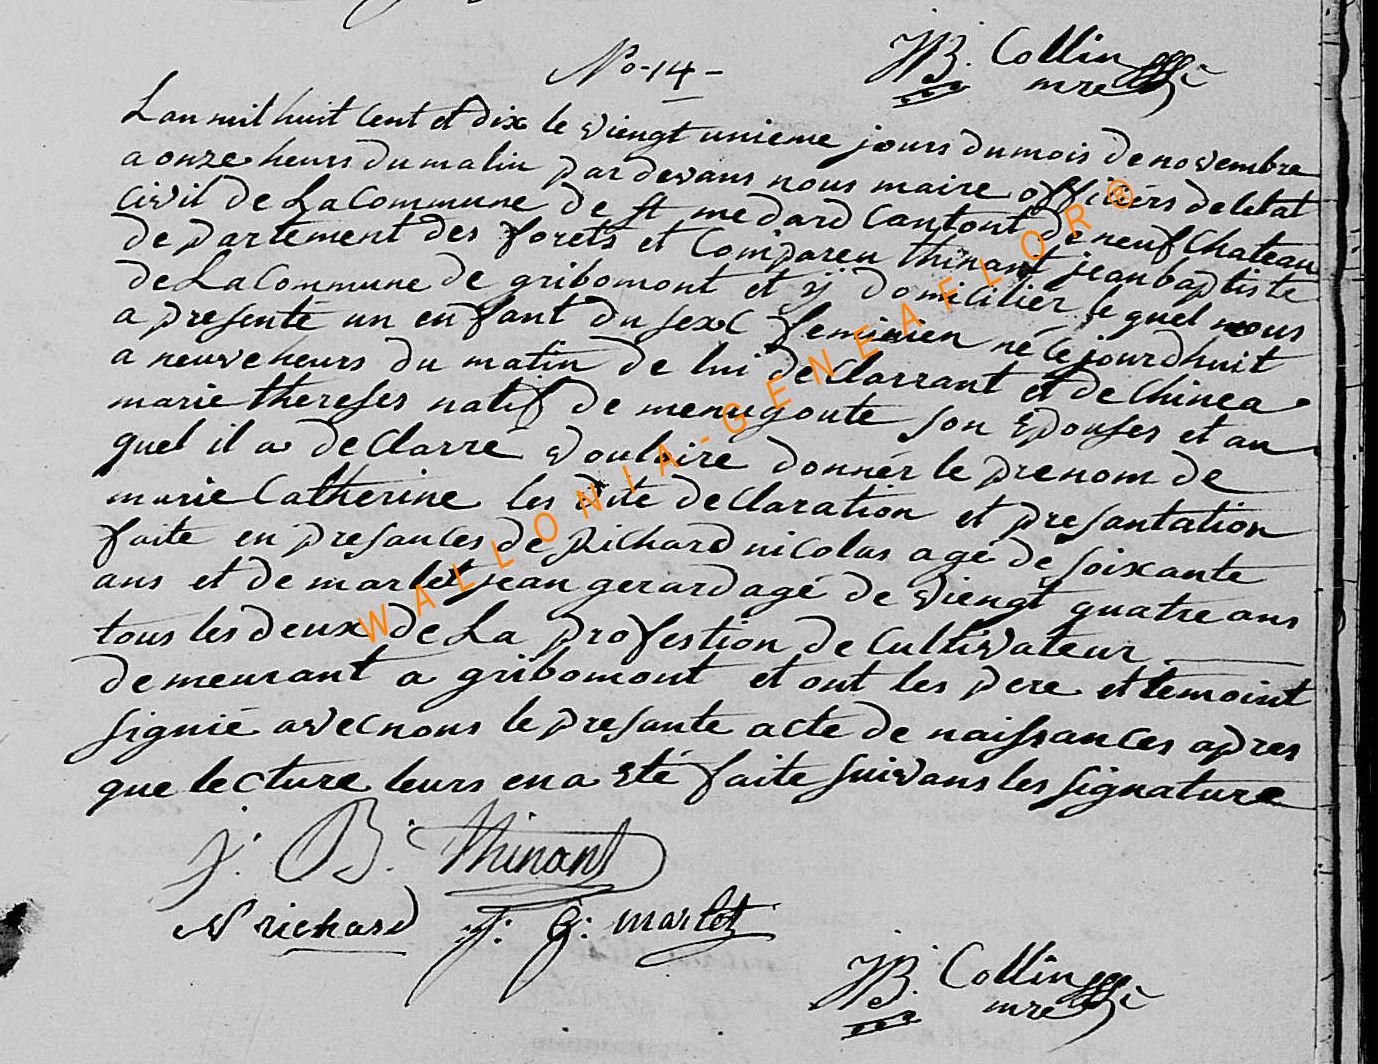 JB. Collin
mre
No-14-
Lan mil huit Cent et dix le viengt unieme jours du mois de novembre
a onze heurs du matin par devans nous maire officiérs de letat
civil de La Commune de st medard Cantont de neufchateau
departement des forets et Compareu thinant jean baptiste
de La Commune de gribomont et ÿ domicilier le quel nous
a presenté un enfant du sexe feminien né ce jourdhuit
a neuve heurs du matin de lui declarrant et de Chinea
marie thereses natif de menugoute son Epouses et au
quel il a declarré vouloire donnér le prenom de
marie Catherine les dite declaration et presantation
faite en presances de Richard nicolas agé de soixante
ans et de marlet jean gerard agé de viengt quatre ans
tous les deux de La profestion de Cultivateur
demeurant a gribomont et ont les pere et temoint
signié avec nous le presante acte de naissances apres
que lecture leurs en a Eté faite suivans les signature
j. B. Thinant
N richard J: G: marlet
JB. Collin
mre
WALLONIA-GENEAFLOR®